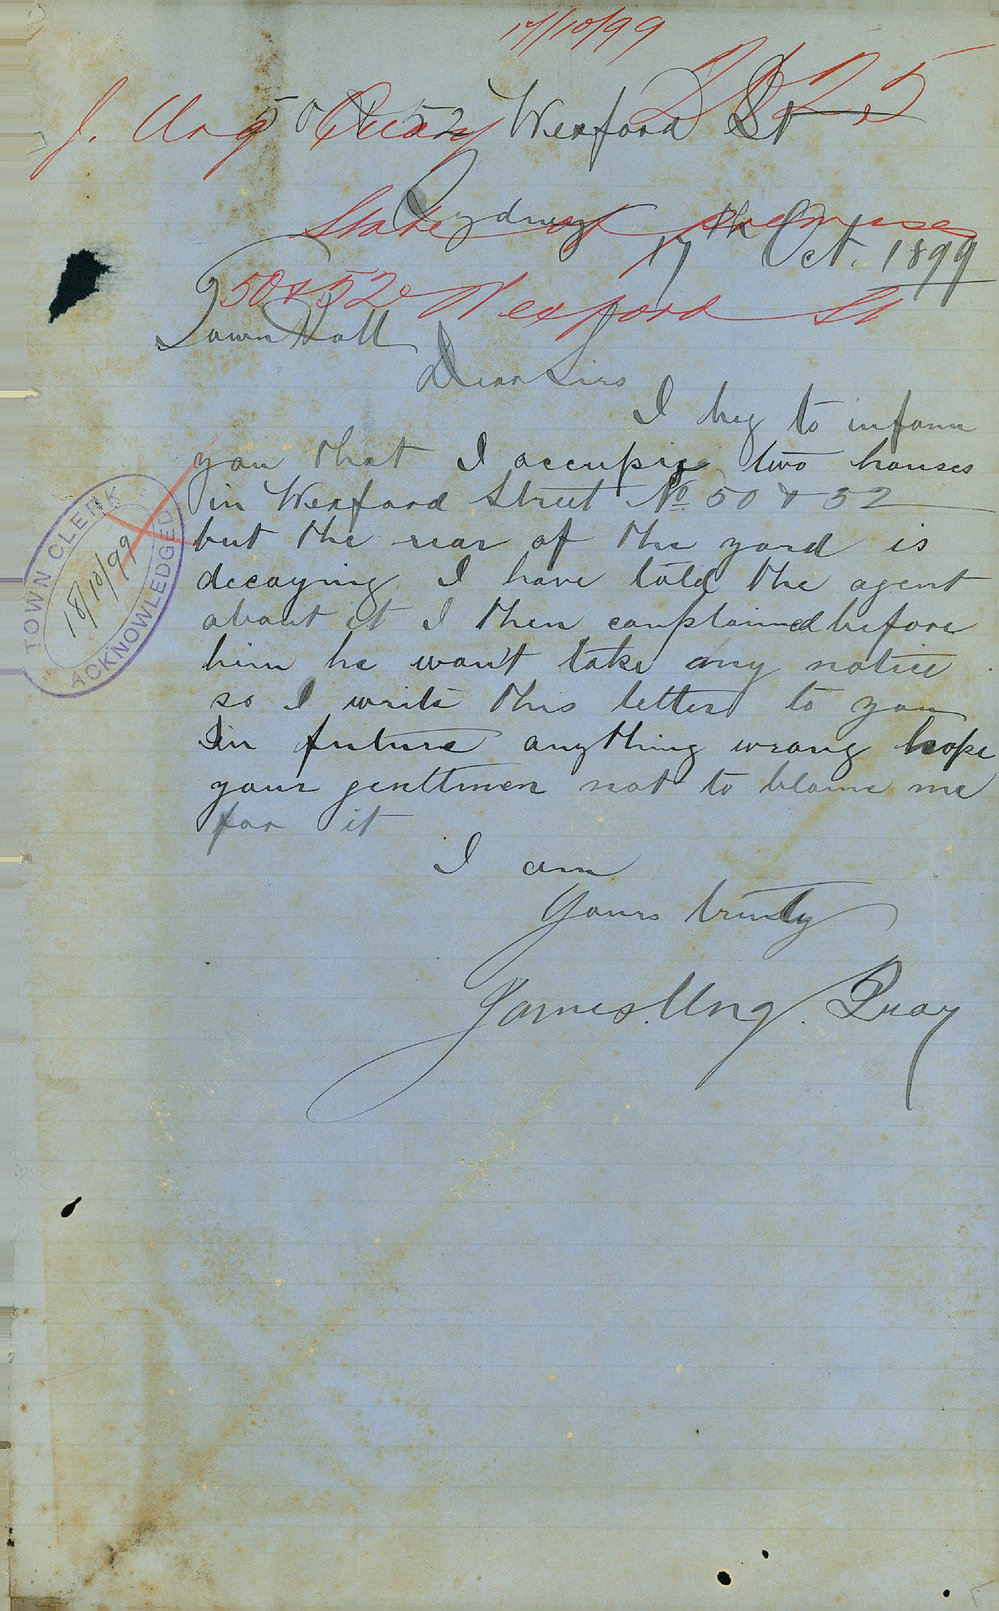 17/10/99
J. Ung Quay
50 & 52 Wexford St
Sydney
State of premises
17th Oct. 1899
50 & 52 Wexford St
Town Hall
Dear Sirs
I beg to inform
you that I occupig two houses
in Wexford Street No 50 & 52
but the rear of the yard is
decaying I have told the agent
about it I then complained before
him he won't take any notice
so I write this letter to you
In future anything wrong hope
your genttmen not to blame me
for it
I am
Yours truly
James. Ung. Quay
TOWN CLERK
18/10/99
ACKNOWLEDGED